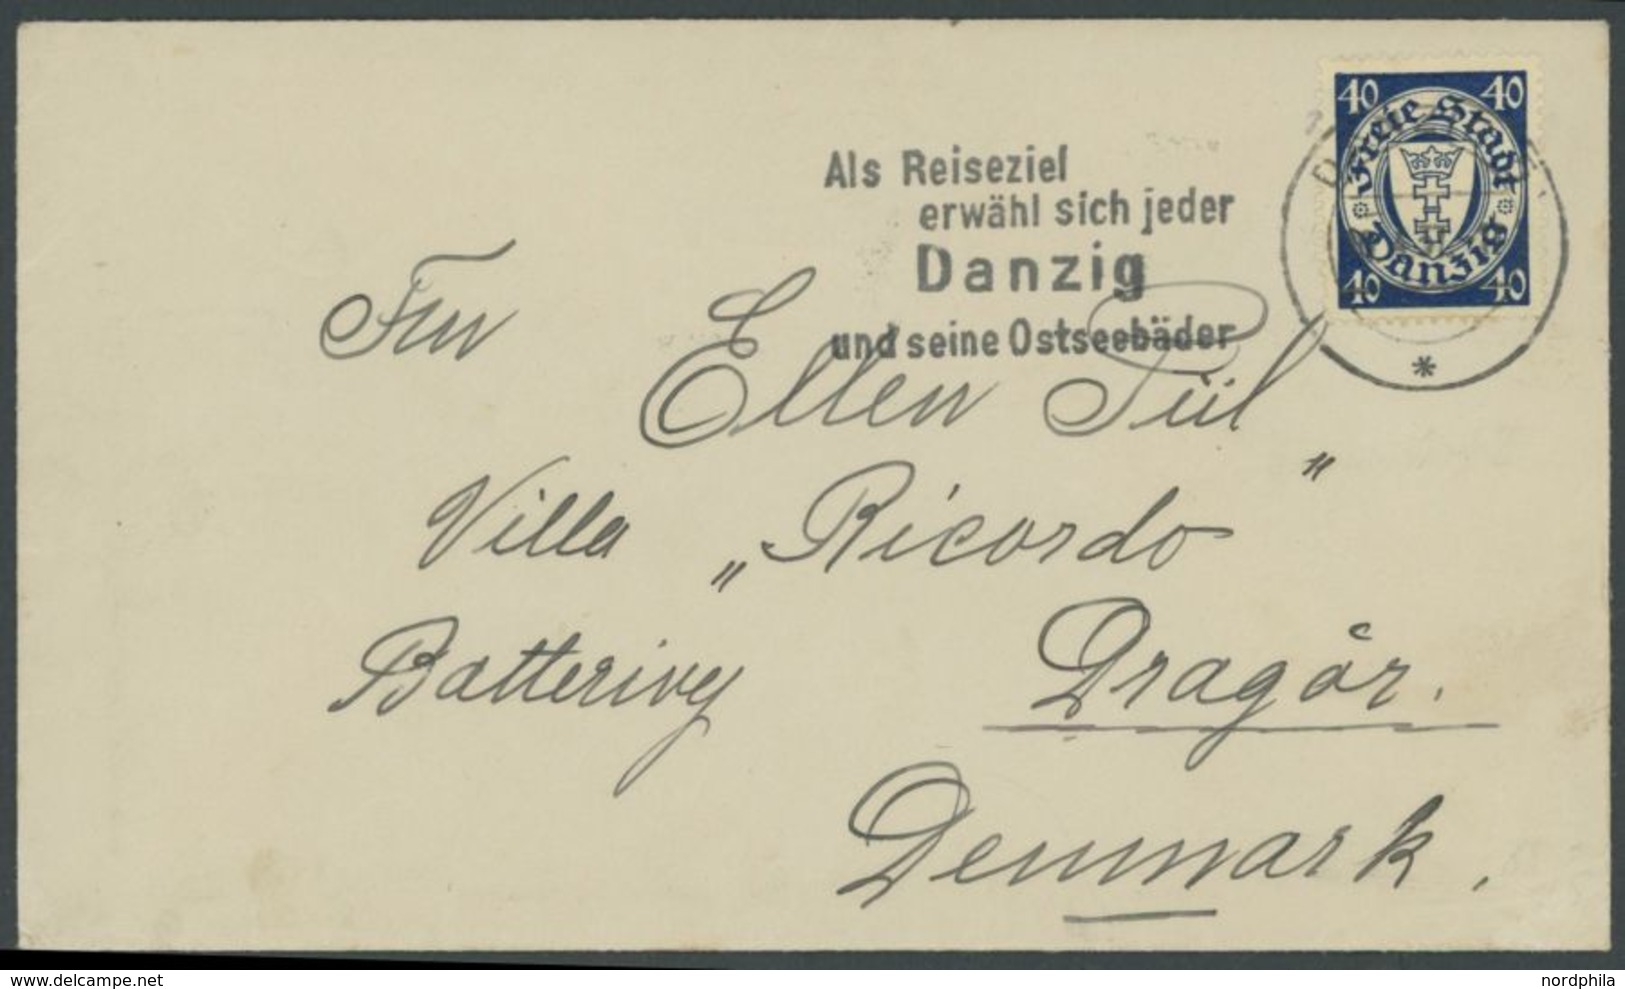 Als Reiseziel
erwähl sich jeder
Danzig
und seine Ostseebäder
40 40
Freie Stadt
Danzig
40 40
*
Fru
Ellen Püil
Villa „Ricordo"
Batterivej Dragör.
Denmark.
nordphila www.delcampe.net